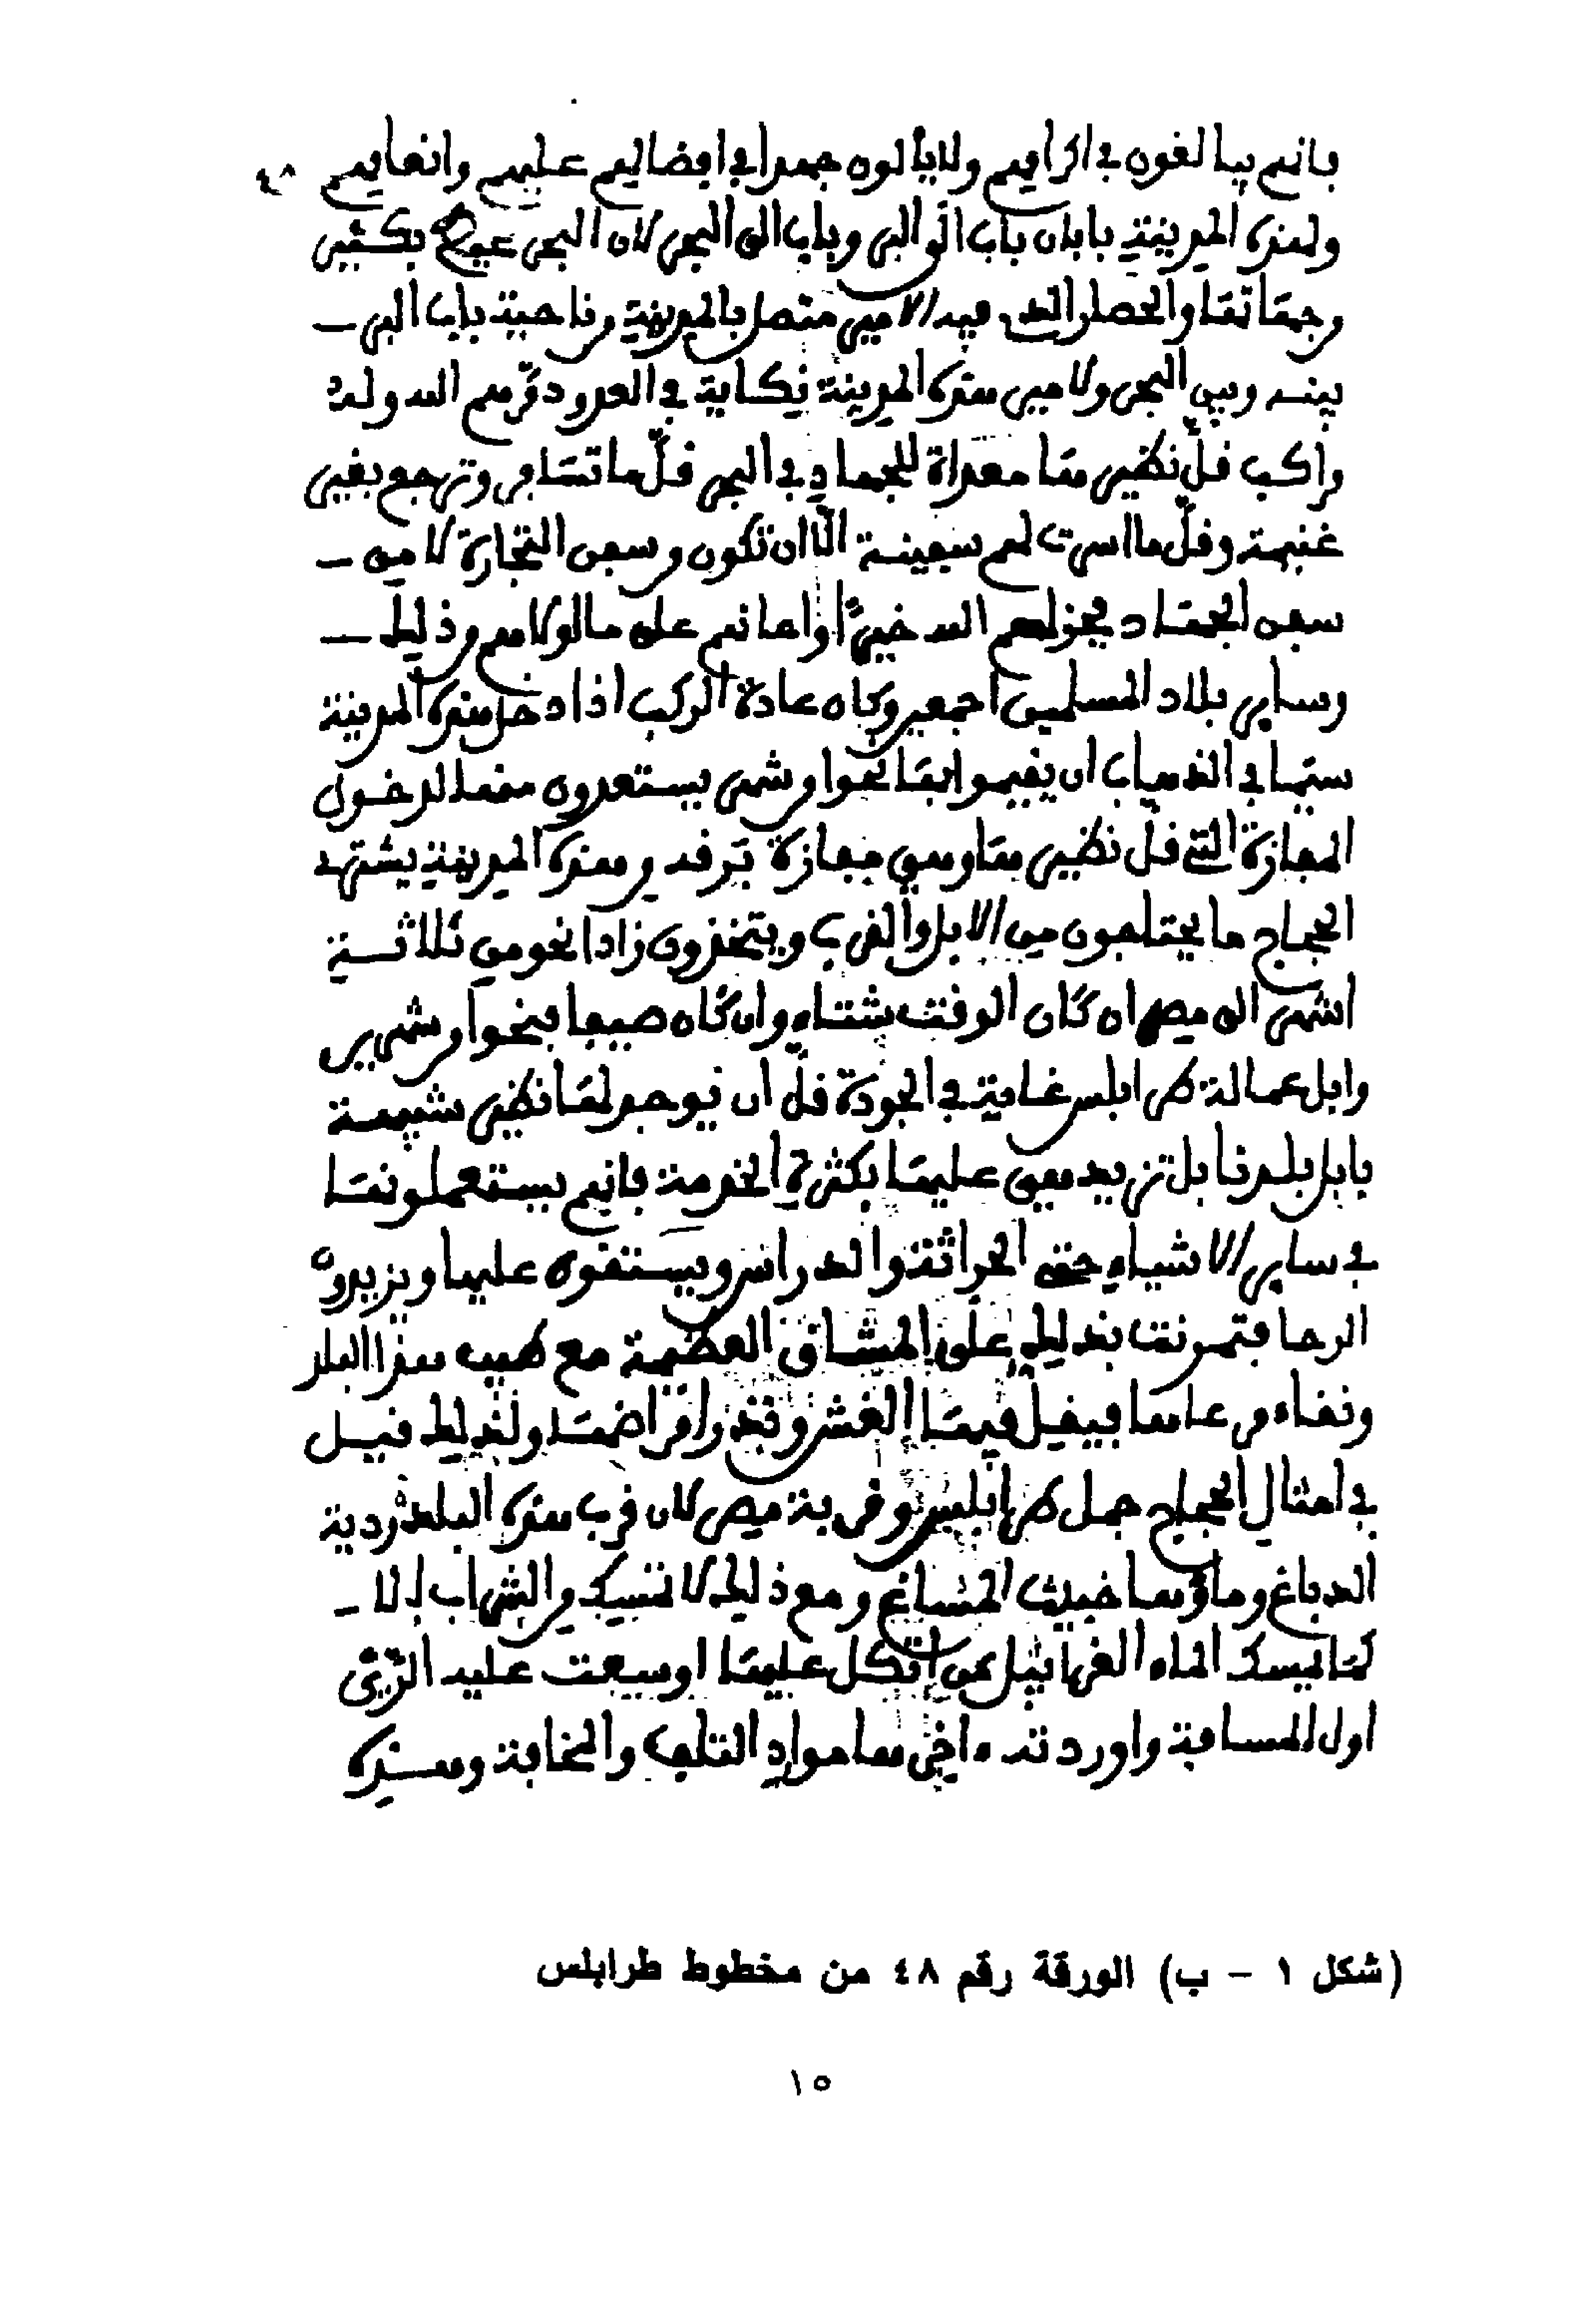 فانهم يبالغون في اكرامهم ولا يألون جهدا في افضالهم عليهم وانعامهم ٤٨
ولهذه المدينة بابان باب الى البر وباب الى البحر لان البحر محيط بكثير
من جهاتها والحصن الذي فيه الامير متصل بالمدينة من ناحية باب البر
بينه وبين البحر ولامير هذه المدينة نكاية في العدو دمرهم الله وله
مراكب قل نظيرها معداة للجهاد في البحر قل ما تسافر وترجع بغير
غنيمة وقل ما اسرت لهم سفينة الا ان تكون من سفن التجارة لا من
سفن الجهاد فجزاهم الله خيرا واعانهم على ما اولاهم من ذلك
وساير بلاد المسلمين اجمعين وكان عادة الركب اذا دخل هذه المدينة
سيما في الذهاب ان يقيموا بها نحوا من شهر يستعدون منها لدخول
المفازة التي قل نظيرها وهي مفازة برقة ومن هذه المدينة يشتري
الحجاج ما يحتاجون من الابل والقرب ويتخذون زادا نحو من ثلاثة
اشهر الى مصر ان كان الوقت شتاء وان كان صيفا فنحوا من شهرين
وابل عمالة طرابلس غاية في الجودة قل ان يوجد لها نظير شبيهة
بابل بلدنا بل تزيد هي عليها بكثرة الخدمة فانهم يستعملونها
في ساير الاشياء حتى الحراثة والدراس ويستقون عليها ويديرون
الرحا فتمرنت بذلك على المشاق العظيمة مع طيب هذا البلد
ونقاء مرعاها فيقل فيها الغش وتندر امراضها ولذلك قيل
في امثال الحجاج جمل طرابلس وقربة مصر لان قرب هذه البلد ردية
الدباغ وماؤها خبيث المساغ ومع ذلك لا تمسك من الشراب الا
كما يمسك الماء الغرابيل فمن اتكل عليها اوسعت عليه الثرى
اول المسافة واوردته ءاخرها موارد التلف والمخافة وهذه
(شكل ١ - ب) الورقة رقم ٤٨ من مخطوط طرابلس
١٥